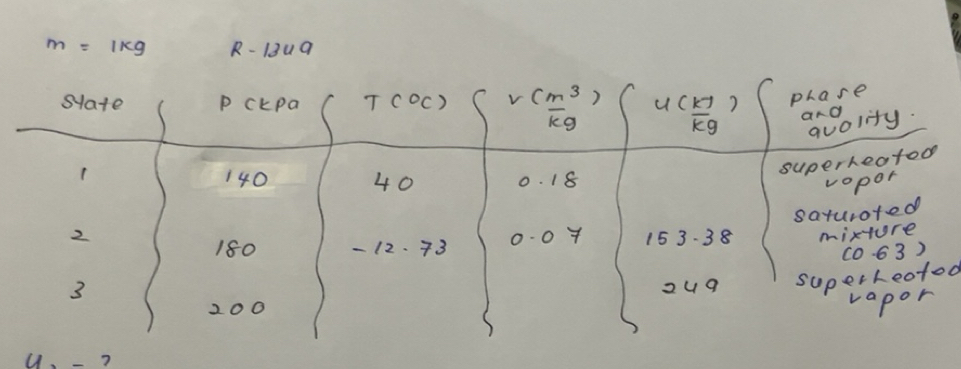 m = 1kg R-134a
State P (kpa T (°C) v (m³/kg) u (kJ/kg) phase and quality.
1 140 40 0.18 superheated vapor
2 180 -12.73 0.07 153.38 saturated mixture (0.63)
3 200 249 superheated vapor